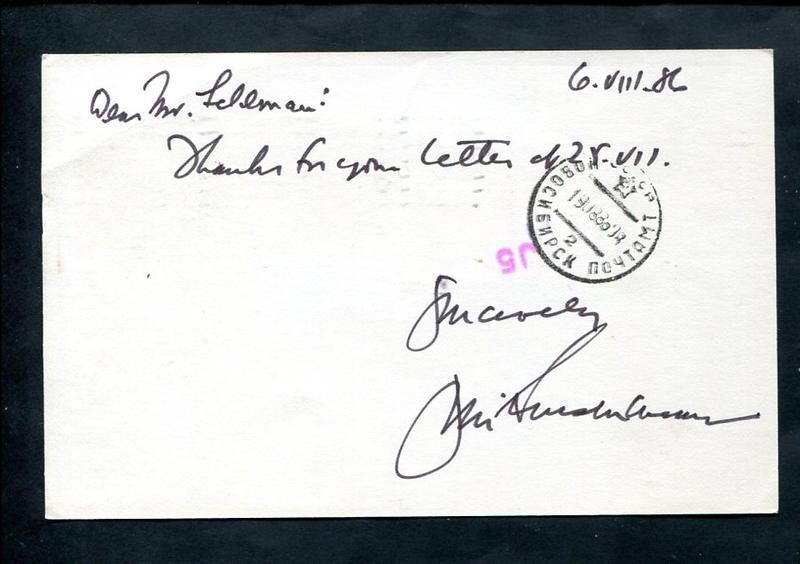 6.VIII.86
Dear Mr.
Thanks for your letter of 28.VII.
НОВОСИБИРСК ПОЧТАМТ
2
J5
Sincerely